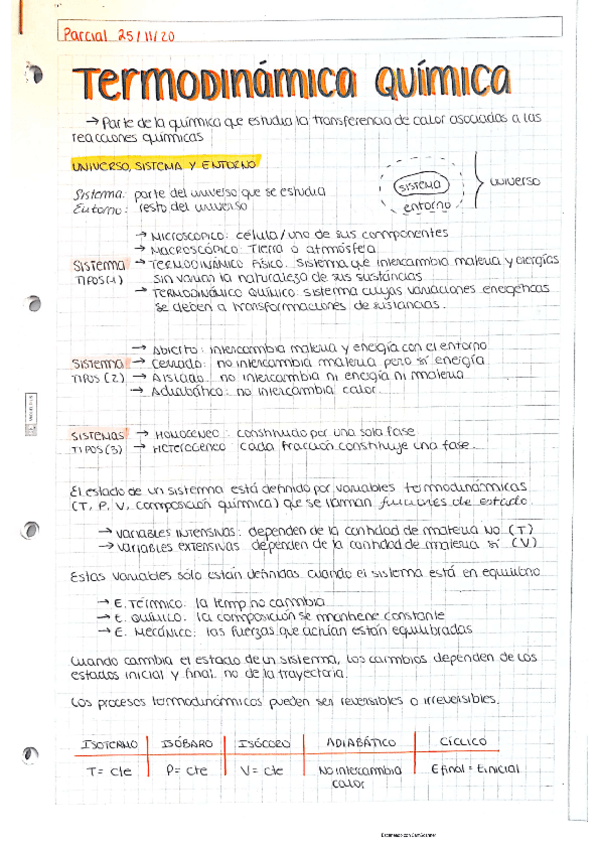 Parcial 25/11/20
TERMODINÁMICA QUÍMICA
→ Parte de la química que estudia la transferencia de calor asociadas a las
reacciones químicas
UNIVERSO, SISTEMA Y ENTORNO
Sistema: parte del universo que se estudia
Entorno: resto del universo
sistema
entorno
universo
→ MICROSCÓPICO: célula/uno de sus componentes
→ MACROSCÓPICO: Tierra o atmósfera
SISTEMA → TERMODINÁMICO FÍSICO: Sistema que intercambia materia y energías
TIPOS(1) sin variar la naturaleza de sus sustancias
→ TERMODINÁMICO QUÍMICO: sistema cuyas variaciones energéticas
se deben a transformaciones de sustancias.
→ Abierto: intercambia materia y energía con el entorno
SISTEMA → Cerrado: no intercambia materia pero sí energía
TIPOS (2) → Aislado: no intercambia ni energía ni materia
→ Adiabático: no intercambia calor
SISTEMAS → HOMOGÉNEO: constituido por una sola fase
TIPOS(3) → HETEROGÉNEO: cada fracción constituye una fase.
El estado de un sistema está definido por variables termodinámicas
(T, P, V, composición química) que se llaman funciones de estado
→ VARIABLES INTENSIVAS: dependen de la cantidad de materia NO (T)
→ VARIABLES EXTENSIVAS: dependen de la cantidad de materia SÍ (V)
Estas variables sólo están definidas cuando el sistema está en equilibrio
→ E. TÉRMICO: la temp no cambia
→ E. QUÍMICO: la composición se mantiene constante
→ E. MECÁNICO: las fuerzas que actúan están equilibradas
Cuando cambia el estado de un sistema, los cambios dependen de los
estados inicial y final. no de la trayectoria.
Los procesos termodinámicos pueden ser reversibles o irreversibles.
ISOTERMO ISÓBARO ISÓCORO ADIABÁTICO CÍCLICO
T = cte P = cte V = cte No intercambia E final = E inicial
calor
Escaneado con CamScanner